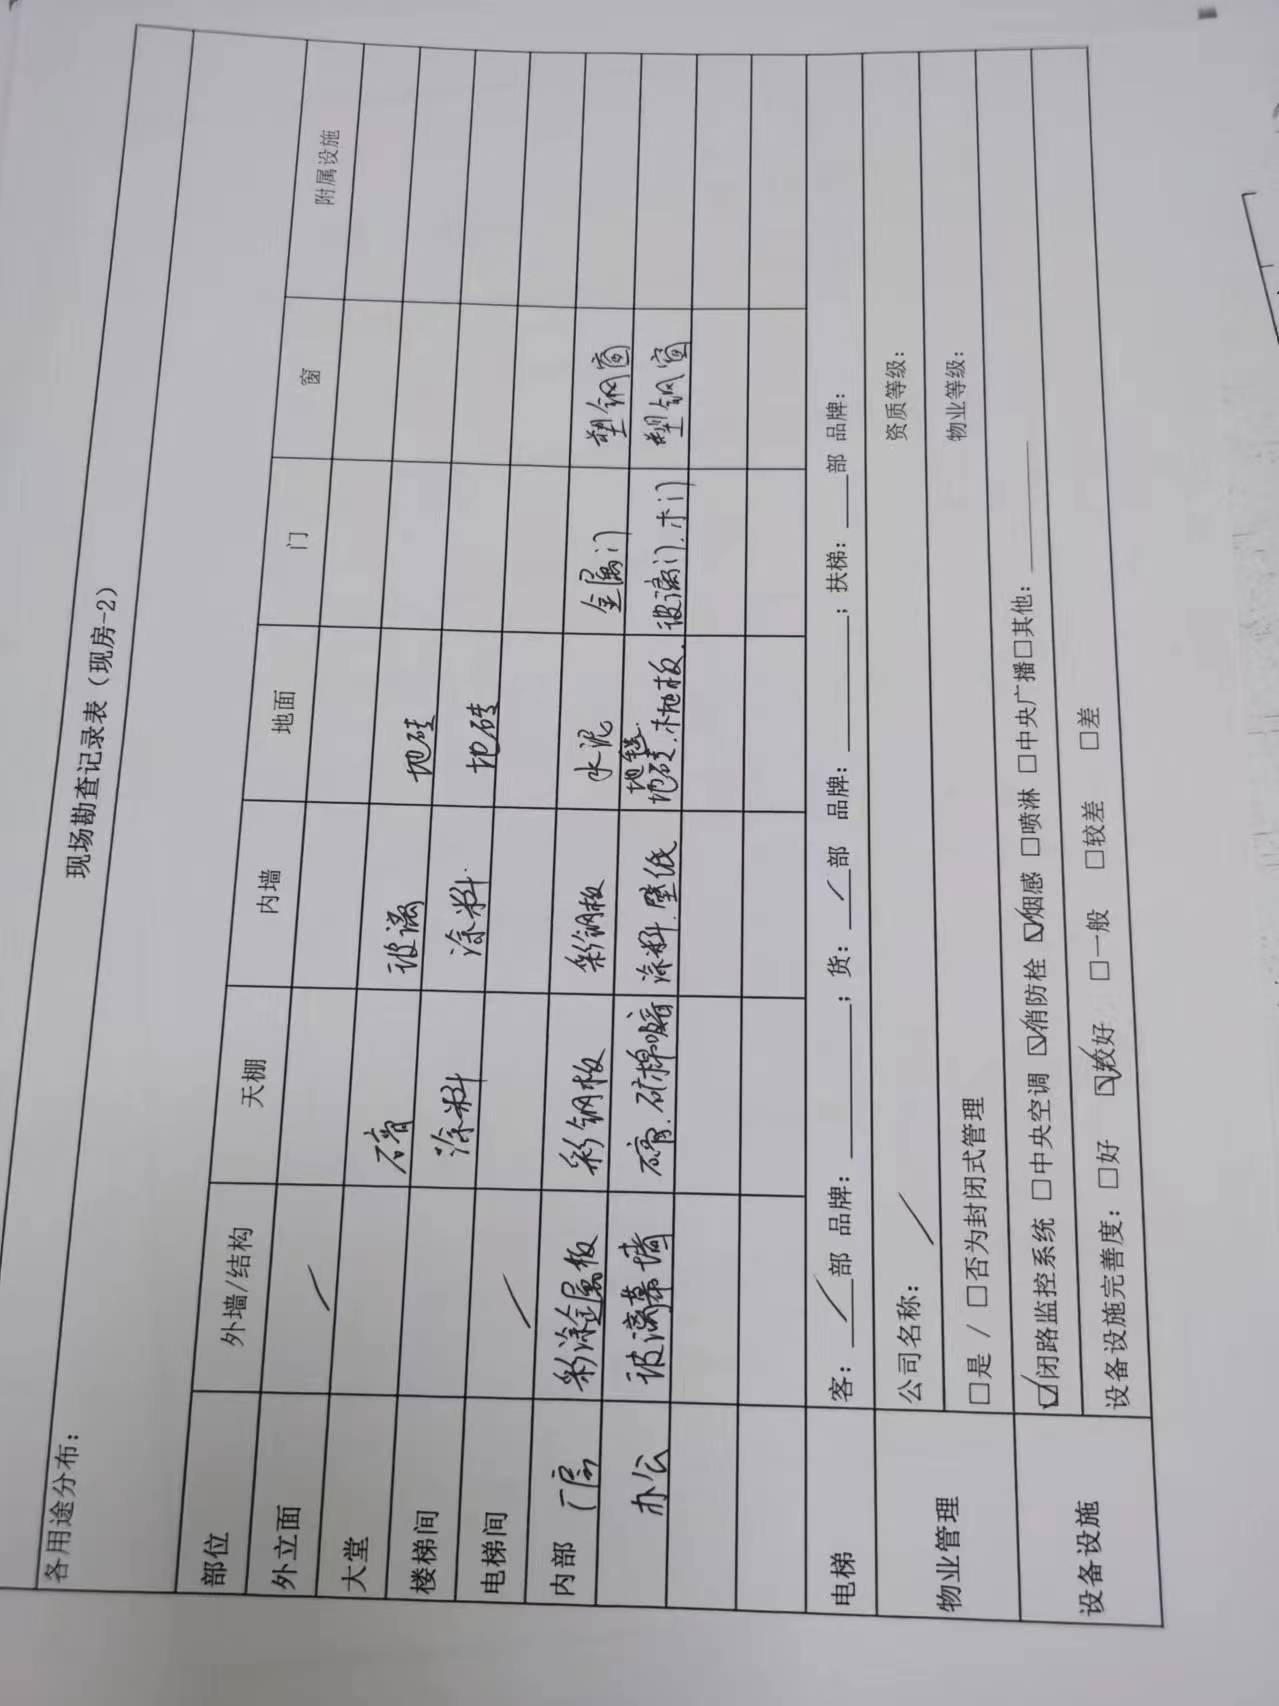 现场勘查记录表（现房-2）
各用途分布：
部位 外墙/结构 天棚 内墙 地面 门 窗 附属设施
外立面 /
大堂 石膏 玻璃 地砖
楼梯间 涂料 涂料 地砖
电梯间 /
内部 厂房 彩涂金属板 彩钢板 彩钢板 水泥 金属门 塑钢窗
地毯
办公 玻璃幕墙 石膏、矿棉吸音 涂料、壁纸 地砖、木地板 玻璃门、木门 塑钢窗
电梯 客：/部 品牌：____；货：/部 品牌：____；扶梯：__部 品牌：
物业管理 公司名称： / 资质等级：
□是 / □否为封闭式管理 物业等级：
设备设施 ☑闭路监控系统 □中央空调 ☑消防栓 ☑烟感 □喷淋 □中央广播□其他：____
设备设施完善度：□好 ☑较好 □一般 □较差 □差